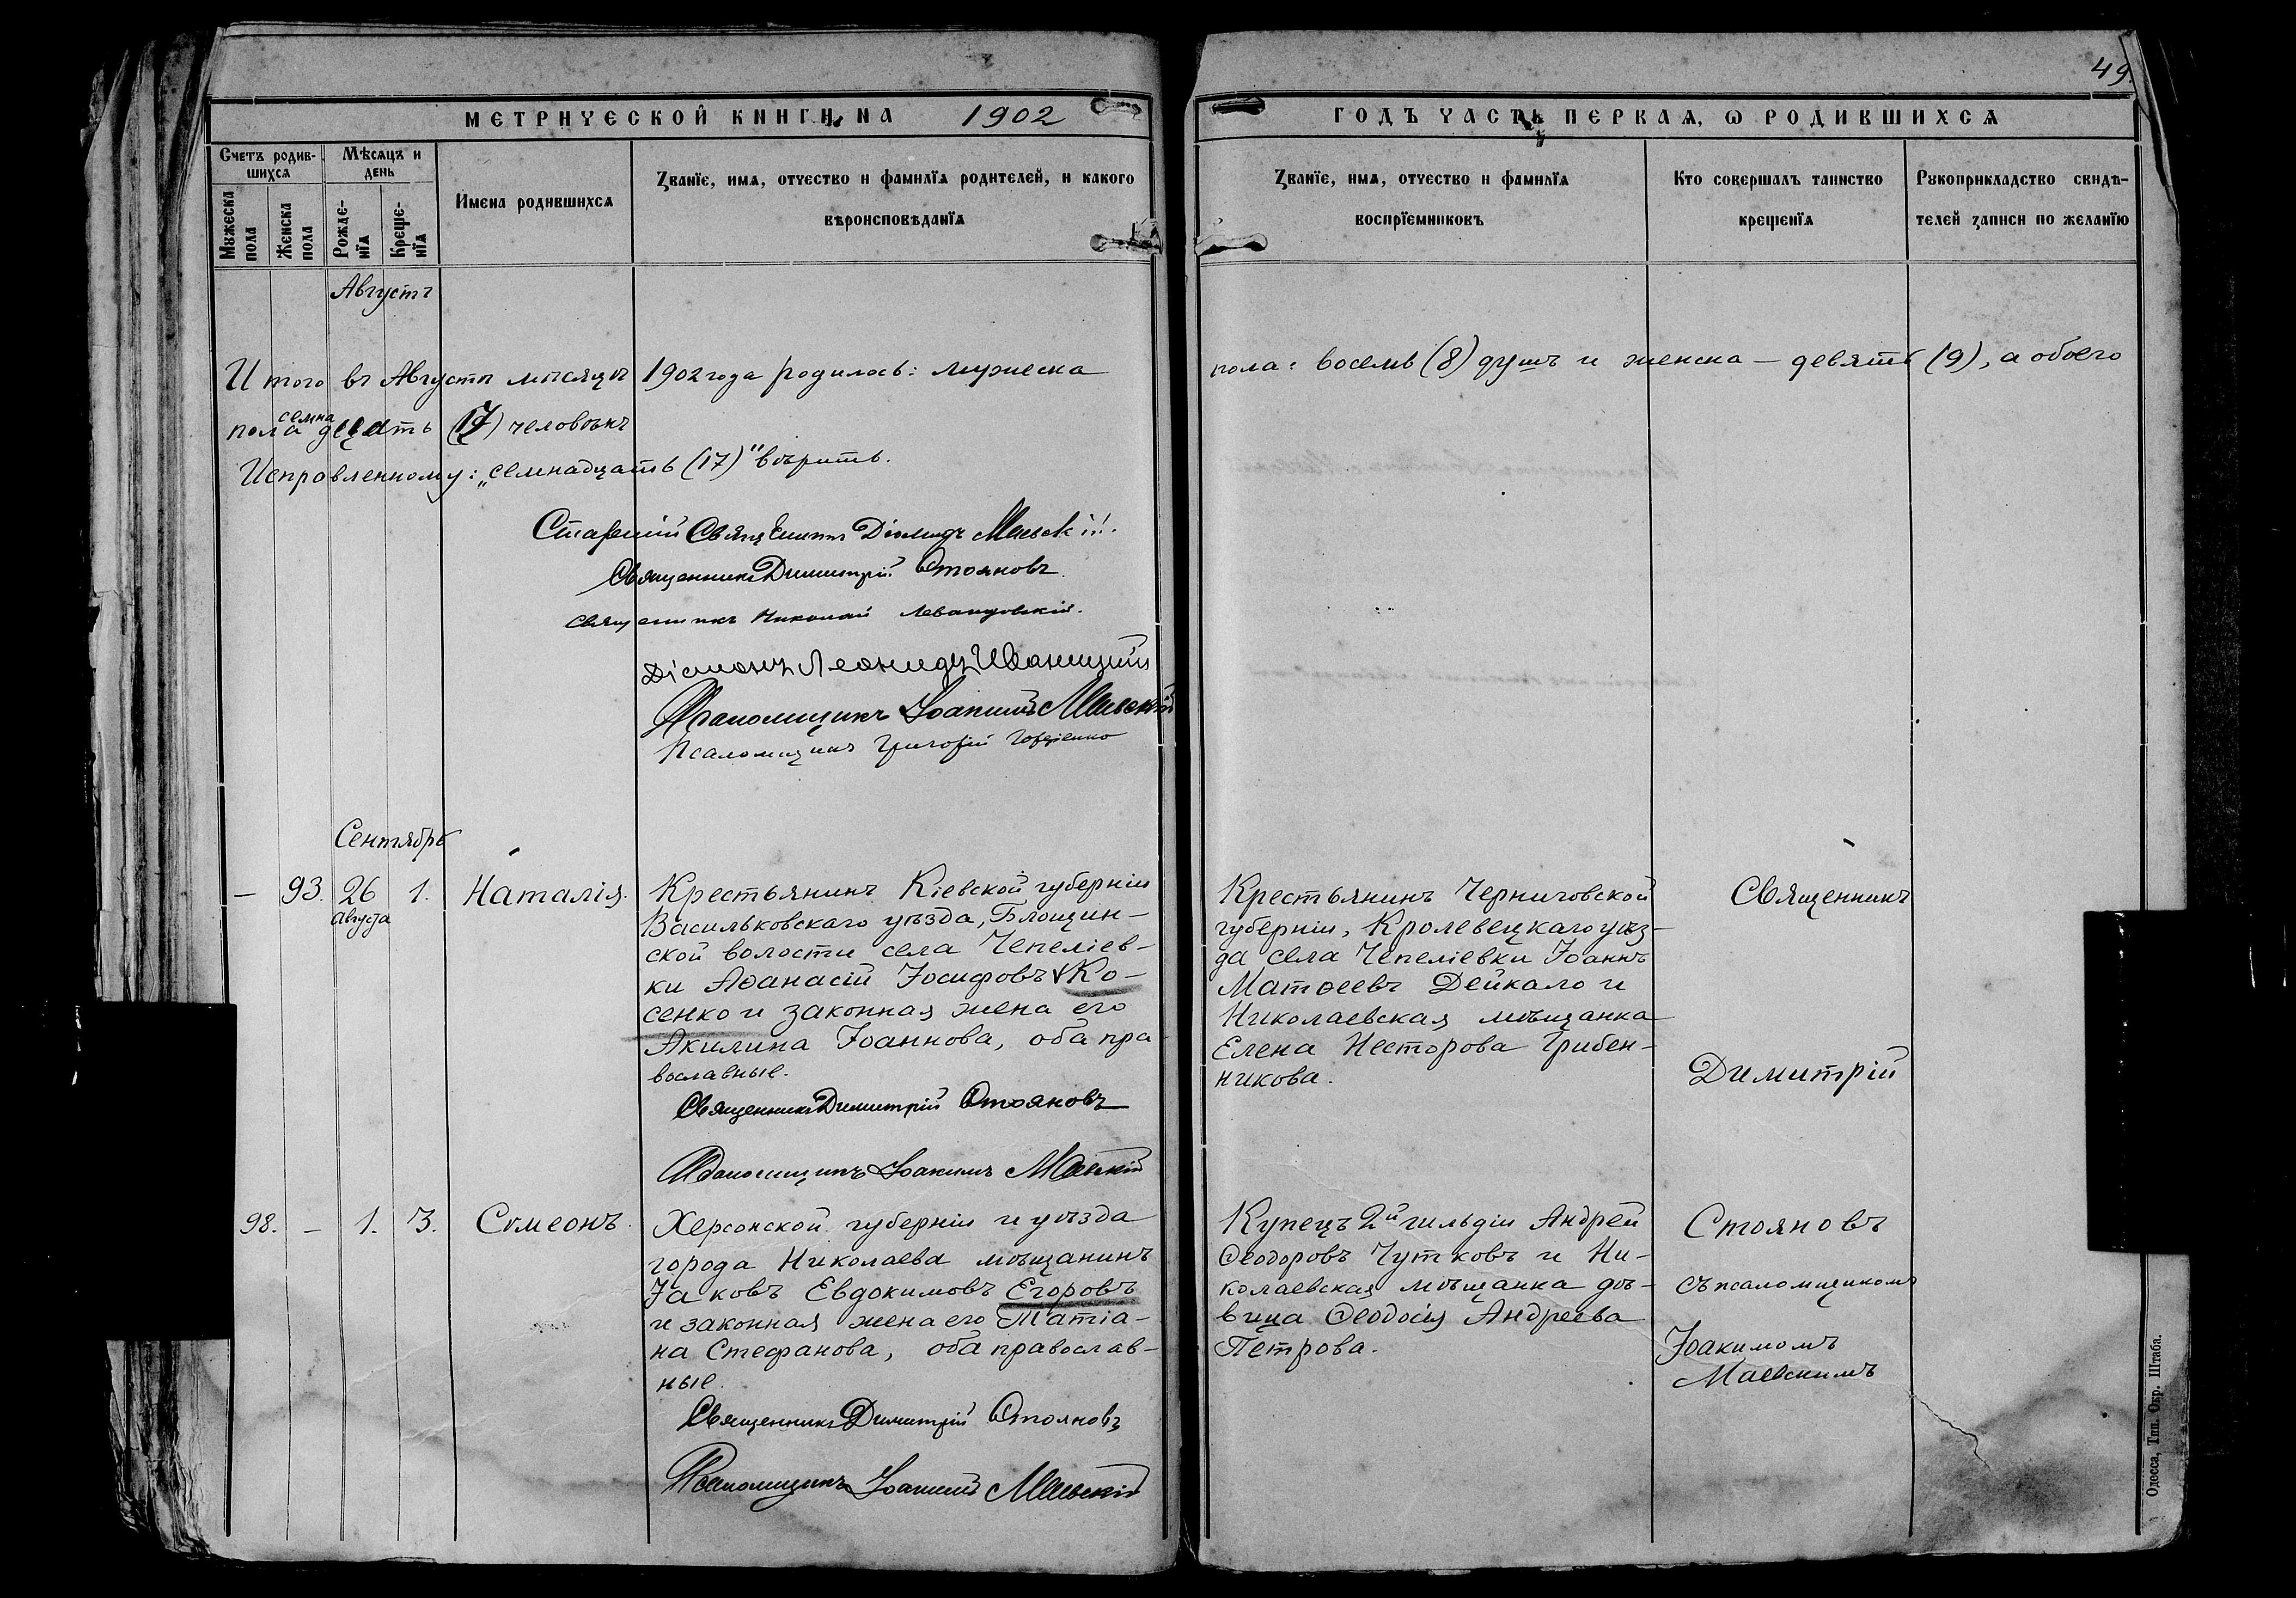 49.
МЕТРИЧЕСКОЙ КНИГИ НА 1902
ГОДЪ ЧАСТЬ ПЕРВАЯ, Ѡ РОДИВШИХСЯ
Счетъ родив-
шихся
Мѣсяцъ и
день
Мужеска
пола
Женска
пола
Рожде-
нїя
Креще-
нїя
Имена родившихся
Званїе, имя, отчество и фамилїя родителей, и какого
вѣроисповѣданїя
Званїе, имя, отчество и фамилїя
воспрїемниковъ
Кто совершалъ таинство
крещенїя
Рукоприкладство свидѣ-
телей записи по желанїю
Августъ
Итого въ Августѣ мѣсяцѣ 1902 года родилось: мужеска
пола: восемь (8) душъ и женска — девять (9), а обоего
пола семнадцать (17) человѣкъ
Исправленному: „семнадцать (17)" вѣрить.
Старшій Священникъ Діомидъ Маевскій.
Священникъ Димитрій Стояновъ.
Священникъ Николай Левандовскій.
Діаконъ Леонидъ Иваницкій
Псаломщикъ Іоакимъ Маевскій
Псаломщикъ Григорій
Сентябрь
— 93. 26 августа 1. Наталія.
Крестьянинъ Кіевской губерніи
Васильковскаго уѣзда, Блощин-
ской волости села Чепеліев-
ки Аѳанасій Іосифовъ Ко-
сенко и законная жена его
Акилина Іоаннова, оба пра-
вославные.
Священникъ Димитрій Стояновъ
Псаломщикъ Іоакимъ Маевскій
Крестьянинъ Черниговской
губерніи, Кролевецкаго уѣз-
да села Чепеліевки Іоаннъ
Матѳеевъ Дейкало и
Николаевская мѣщанка
Елена Несторова Грибен-
никова.
Священникъ
Димитрій
98. — 1. 3. Сѵмеонъ.
Херсонской губерніи и уѣзда
города Николаева мѣщанинъ
Іаковъ Евдокимовъ Егоровъ
и законная жена его Матіа-
на Стефанова, оба православ-
ные.
Священникъ Димитрій Стояновъ
Псаломщикъ Іоакимъ Маевскій
Купецъ 2й гильдіи Андрей
Ѳеодоровъ Чутковъ и Ни-
колаевская мѣщанка дѣ-
вица Ѳеодосія Андреева
Петрова.
Стояновъ
съ псаломщикомъ
Іоакимомъ
Маевскимъ
Одесса, Тип. Окр. Штаба.